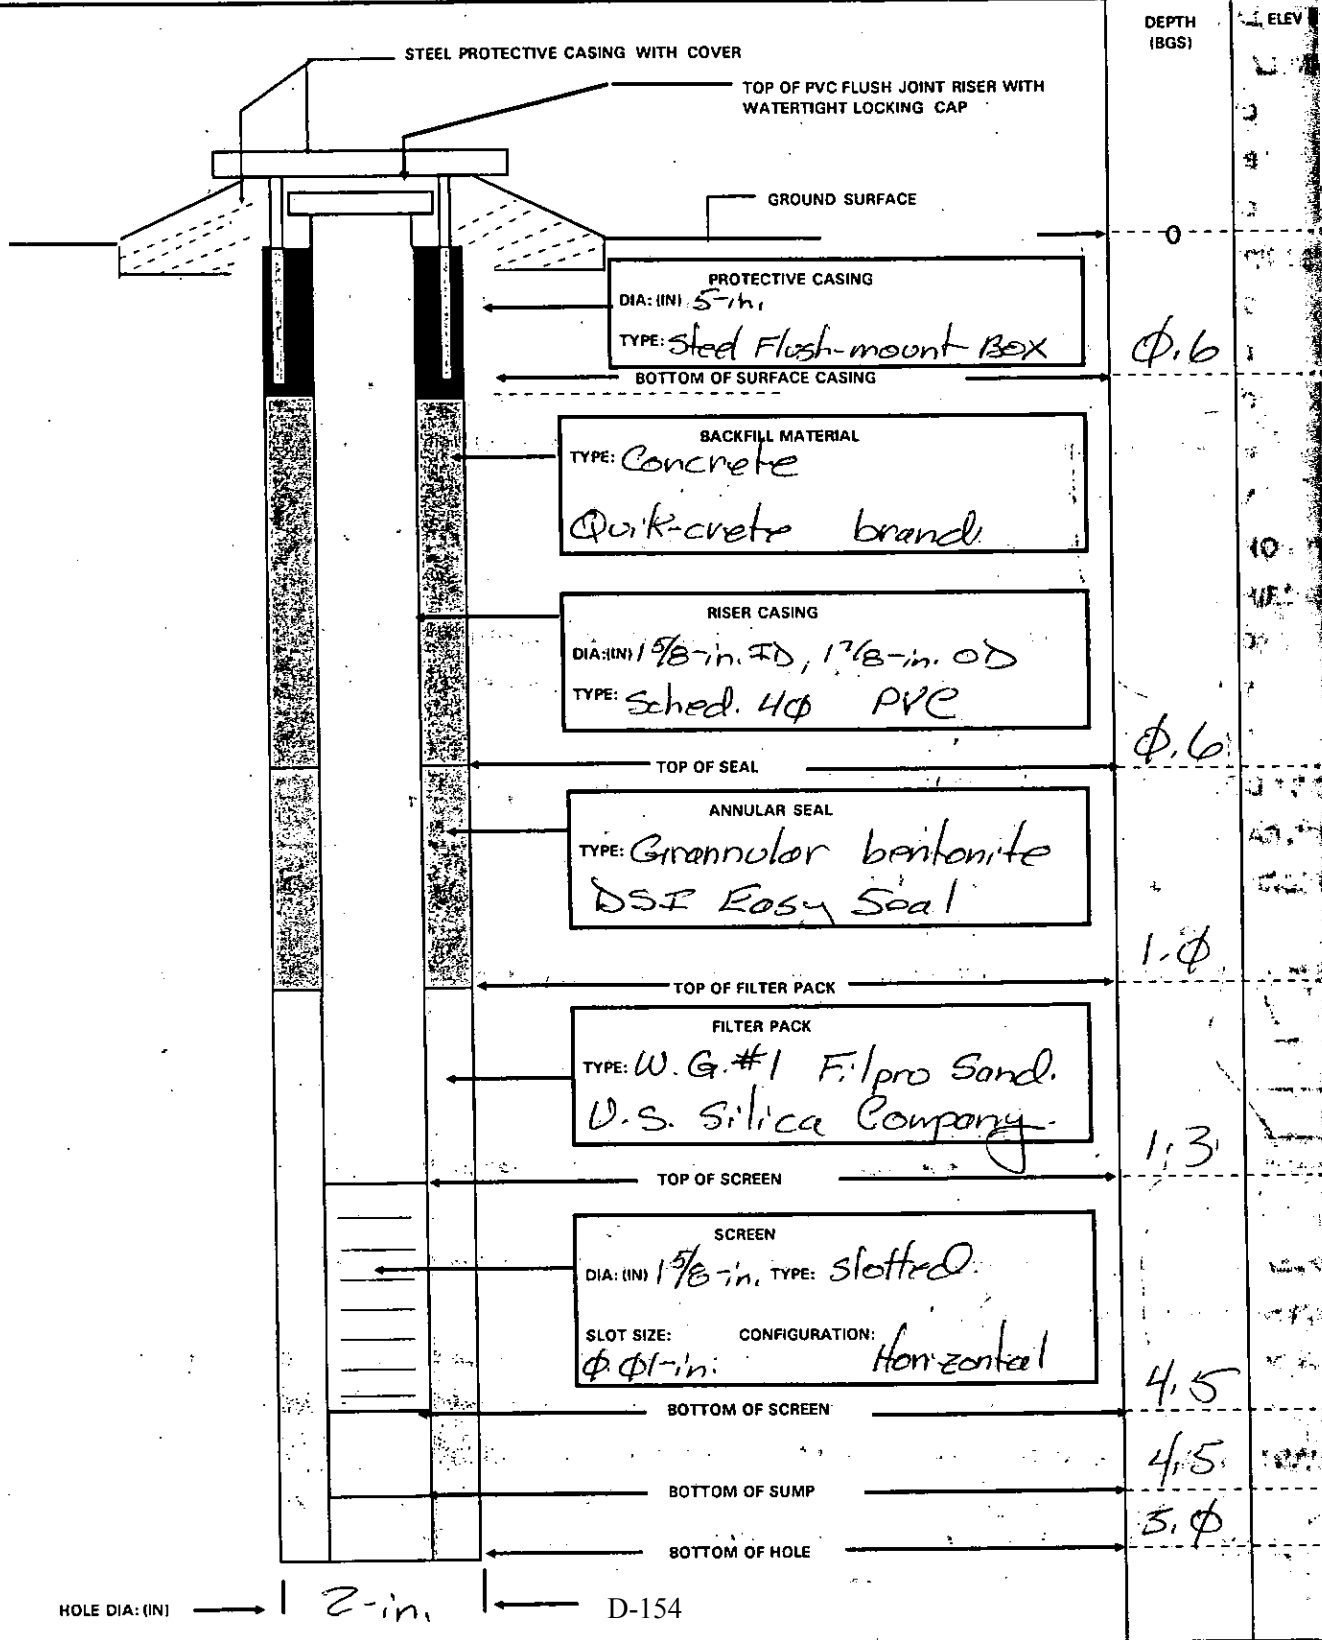 DEPTH
(BGS)
ELEV
STEEL PROTECTIVE CASING WITH COVER
TOP OF PVC FLUSH JOINT RISER WITH
WATERTIGHT LOCKING CAP
GROUND SURFACE
0
PROTECTIVE CASING
DIA: (IN) 5-in.
TYPE: Steel Flush-mount Box
Φ.6
BOTTOM OF SURFACE CASING
BACKFILL MATERIAL
TYPE: Concrete
Quik-crete brand.
RISER CASING
DIA:(IN) 1 5/8-in. ID, 1 7/8-in. OD
TYPE: Sched. 4Φ PVC
Φ.6
TOP OF SEAL
ANNULAR SEAL
TYPE: Grannular bentonite
DSI Easy Seal
1.Φ
TOP OF FILTER PACK
FILTER PACK
TYPE: W.G. #1 Filpro Sand.
U.S. Silica Company.
1.3
TOP OF SCREEN
SCREEN
DIA: (IN) 1 5/8-in. TYPE: Slotted.
SLOT SIZE: CONFIGURATION:
Φ.Φ1-in. Horizontal
4.5
BOTTOM OF SCREEN
4.5
BOTTOM OF SUMP
5.Φ
BOTTOM OF HOLE
HOLE DIA: (IN) 2-in.
D-154